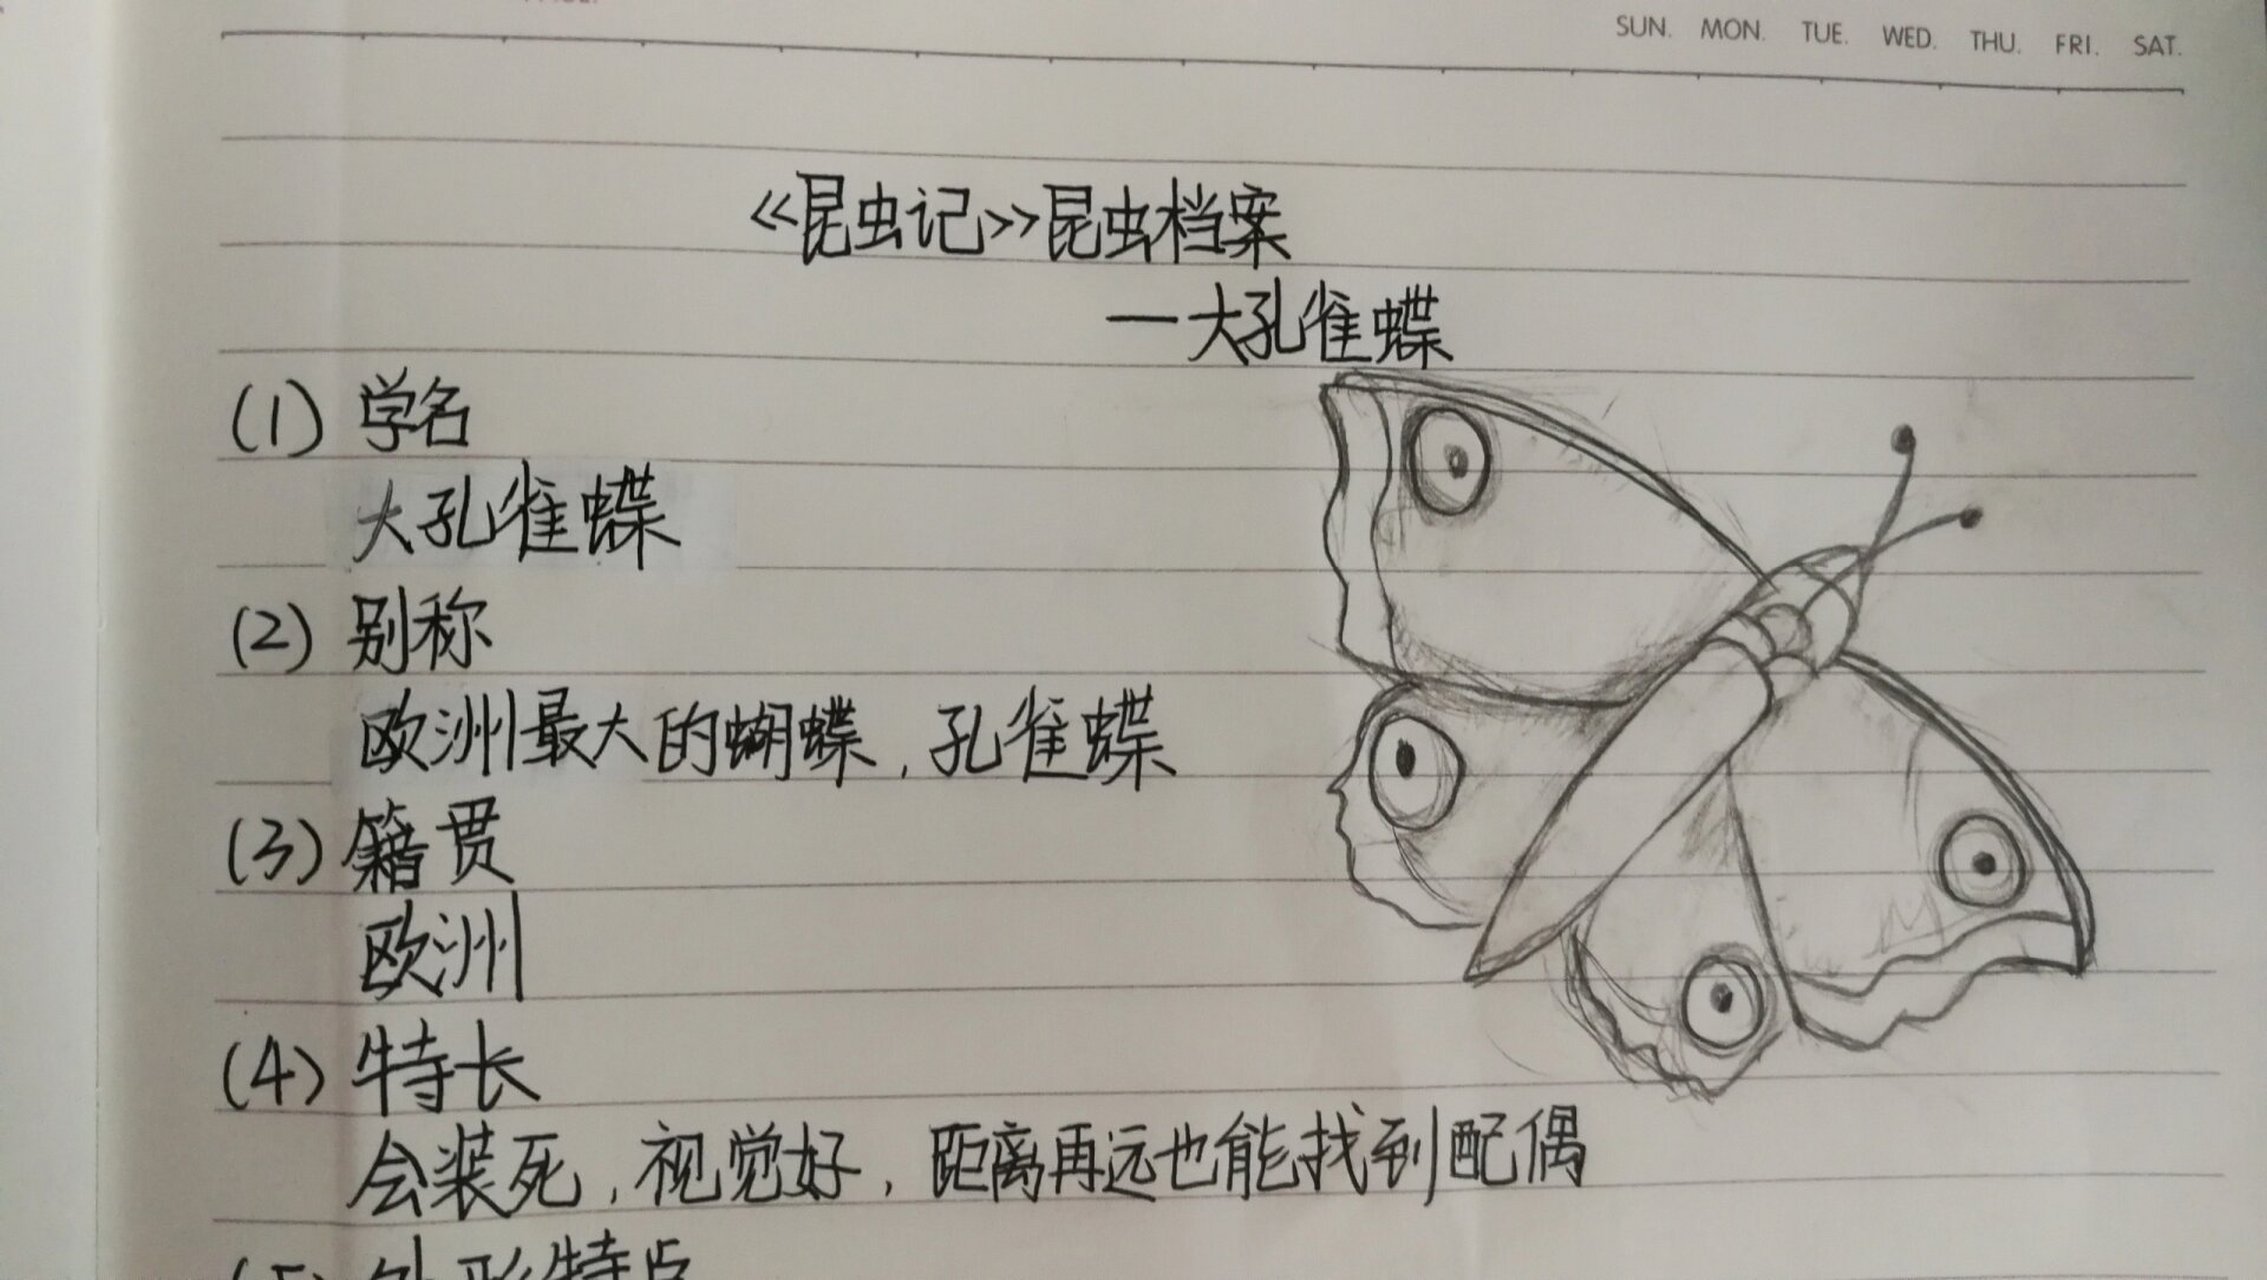 SUN. MON. TUE. WED. THU. FRI. SAT.
《昆虫记》昆虫档案
一大孔雀蝶
(1) 学名
大孔雀蝶
(2) 别称
欧洲最大的蝴蝶,孔雀蝶
(3) 籍贯
欧洲
(4) 特长
会装死,视觉好,距离再远也能找到配偶
(5) 外形特点